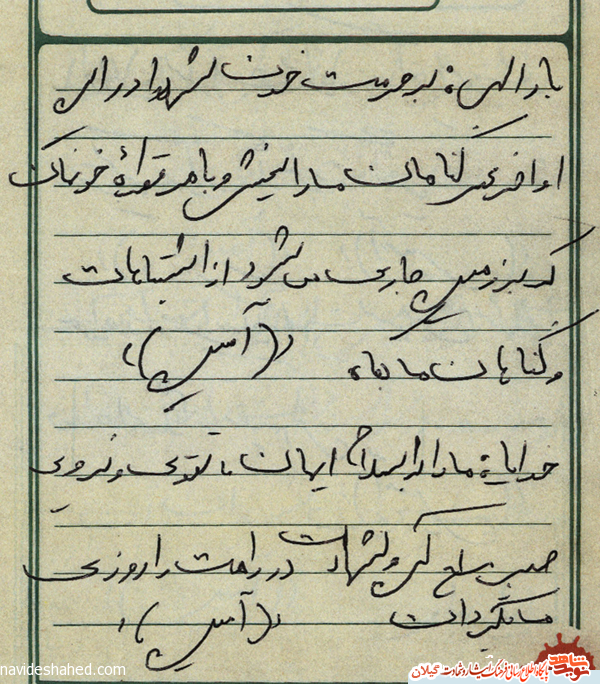 بارالهی؛ به حرمت خون شهدا در این
اواخر عمر گناهان ما را ببخش و با هر قطره خونمان
که بر زمین جاری می شود از اشتباهات
و گناهان ما بکاه «(آمین)»
خدایا؛ ما را با سلاح ایمان، تقوی و نیروی
صبر مسلح کن و شهادت در راهت را روزی
ما بگردان «(آمین)»
navideshahed.com
نوید شاهد
پایگاه اطلاع رسانی فرهنگ ایثار و شهادت گیلان